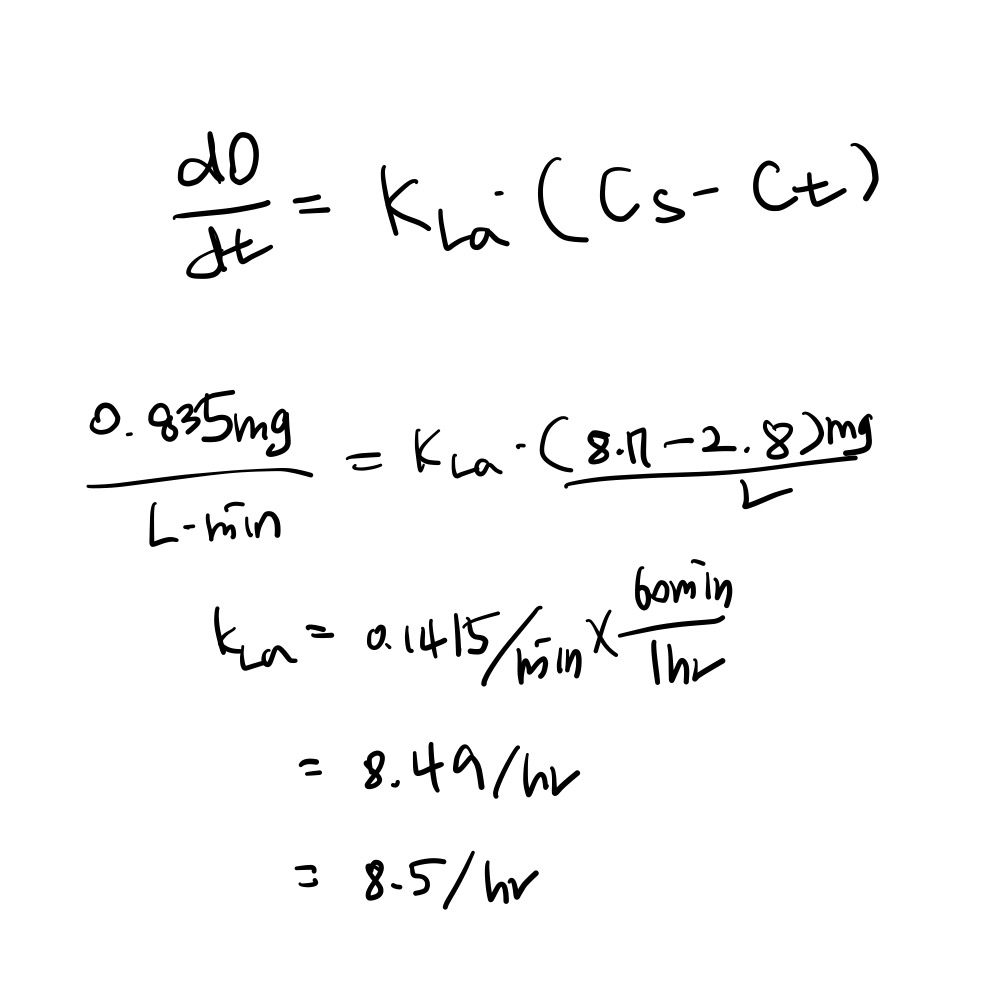 dO/dt = KLa · (Cs - Ct)
0.835mg/L-min = KLa · (8.7-2.8)mg/L
kLa = 0.1415/min × 60min/1hr
= 8.49/hr
= 8.5/hr